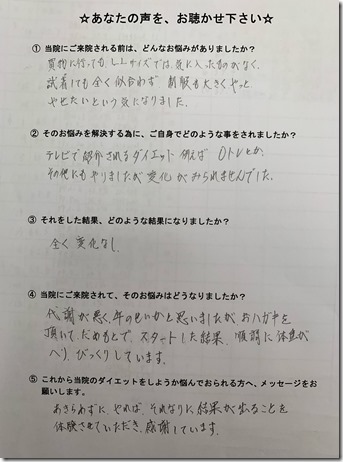 ☆あなたの声を、お聴かせ下さい☆
① 当院にご来院される前は、どんなお悩みがありましたか？
買物に行っても、LLサイズでは、気に入ったものがなく、
試着しても全く似合わず 制服も大きくやっと
やせたいという気になりました。
② そのお悩みを解決する為に、ご自身でどのような事をされましたか？
テレビで紹介されるダイエット 例えば ロトレとか、
その他にもやりましたが変化がみられませんでした。
③ それをした結果、どのような結果になりましたか？
全く変化なし
④ 当院にご来院されて、そのお悩みはどうなりましたか？
代謝が悪く、年のせいかと思いましたが おハガキを
頂いて、だめもとで、スタートした結果、順調に体重が
へり、びっくりしています。
⑤ これから当院のダイエットをしようか悩んでおられる方へ、メッセージをお
願いします。
あきらめずに、やれば、それなりに結果が出ることを
体験させていただき、感謝しています。